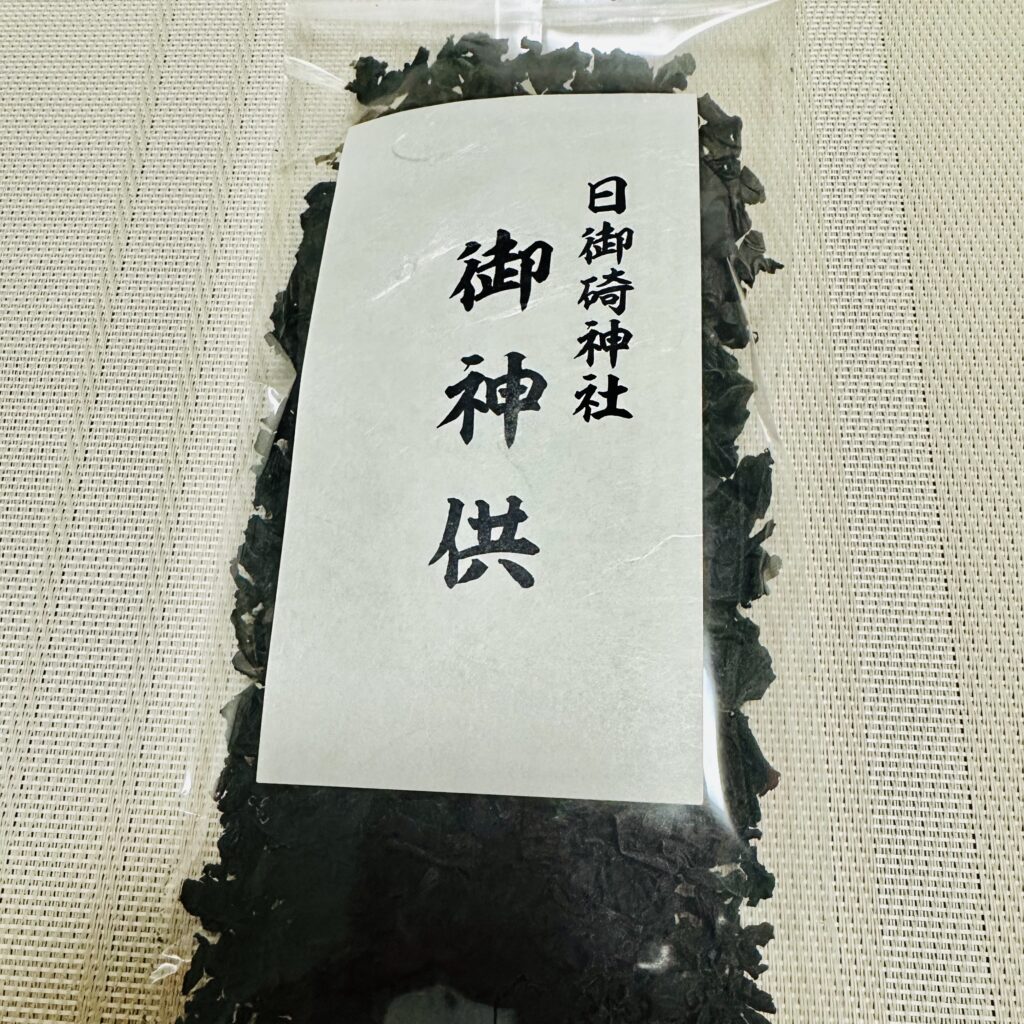 日御碕神社
御神供